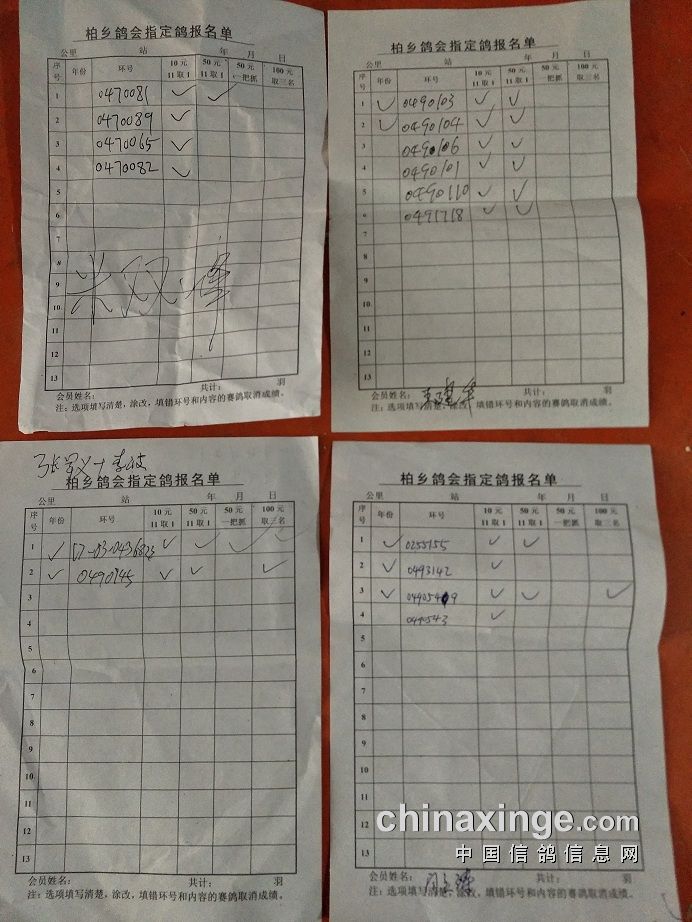 柏乡鸽会指定鸽报名单
公里 站 年 月 日
序号 年份 环号 10元11取1 50元11取1 50元一把抓 100元取三名
1 0470081 ✓ ✓
2 0470089 ✓
3 0470065 ✓
4 0470082 ✓
5
6
7
8
9
10
11
12
13
米双峰
会员姓名： 共计： 羽
注：选项填写清楚，涂改，填错环号和内容的赛鸽取消成绩。
柏乡鸽会指定鸽报名单
公里 站 年 月 日
序号 年份 环号 10元11取1 50元11取1 50元一把抓 100元取三名
1 ✓ 0490103 ✓ ✓
2 ✓ 0490104 ✓ ✓
3 0490106 ✓ ✓
4 0490101 ✓ ✓
5 0490110 ✓ ✓
6 0491718 ✓ ✓
7
8
9
10
11
12
13
会员姓名： 共计： 羽
注：选项填写清楚，涂改，填错环号和内容的赛鸽取消成绩。
柏乡鸽会指定鸽报名单
公里 站 年 月 日
序号 年份 环号 10元11取1 50元11取1 50元一把抓 100元取三名
1 ✓ ✓ ✓ ✓ ✓
2 ✓ 0490745 ✓ ✓ ✓
3
4
5
6
7
8
9
10
11
12
13
会员姓名： 共计： 羽
注：选项填写清楚，涂改，填错环号和内容的赛鸽取消成绩。
柏乡鸽会指定鸽报名单
公里 站 年 月 日
序号 年份 环号 10元11取1 50元11取1 50元一把抓 100元取三名
1 ✓ 0255155 ✓ ✓
2 ✓ 0493142 ✓
3 ✓ ✓ ✓ ✓
4 0490543 ✓
5
6
7
8
9
10
11
12
13
会员姓名： 共计： 羽
注：选项填写清楚，涂改，填错环号和内容的赛鸽取消成绩。
chinaxinge.com
中国信鸽信息网